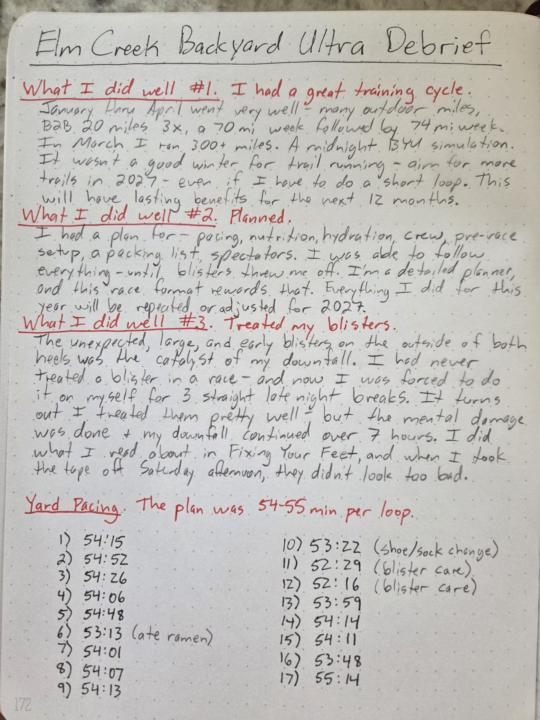 Elm Creek Backyard Ultra Debrief
What I did well #1. I had a great training cycle.
January thru April went very well - many outdoor miles,
B2B 20 miles 3x, a 70 mi week followed by 74 mi week.
In March I ran 300+ miles. A midnight BYU simulation.
It wasn't a good winter for trail running - aim for more
trails in 2027 - even if I have to do a short loop. This
will have lasting benefits for the next 12 months.
What I did well #2. Planned.
I had a plan for - pacing, nutrition, hydration, crew, pre-race
setup, a packing list, spectators. I was able to follow
everything - until blisters threw me off. I'm a detailed planner,
and this race format rewards that. Everything I did for this
year will be repeated or adjusted for 2027.
What I did well #3. Treated my blisters.
The unexpected, large, and early blisters on the outside of both
heels was the catalyst of my downfall. I had never
treated a blister in a race - and now I was forced to do
it on myself for 3 straight late night breaks. It turns
out I treated them pretty well - but the mental damage
was done + my downfall continued over 7 hours. I did
what I read about in Fixing Your Feet, and when I took
the tape off Saturday afternoon, they didn't look too bad.
Yard Pacing. The plan was 54-55 min per loop.
1) 54:15
2) 54:52
3) 54:26
4) 54:06
5) 54:48
6) 53:13 (ate ramen)
7) 54:01
8) 54:07
9) 54:13
10) 53:22 (shoe/sock change)
11) 52:29 (blister care)
12) 52:16 (blister care)
13) 53:59
14) 54:14
15) 54:11
16) 53:48
17) 55:14
172